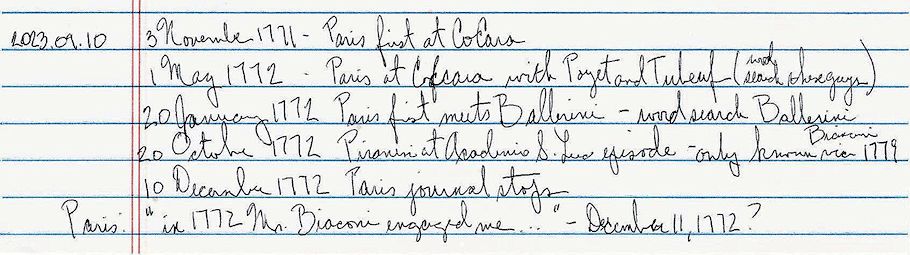 2023.09.10 3 November 1771 - Paris first at CoCara
1 May 1772 - Paris at Cofcara with Poyet and Tubeuf (word search these guys)
20 January 1772 Paris first meets Ballerini - word search Ballerini
20 October 1772 Piranesi at Academia S. Luca episode - only known via Biaconi 1779
10 December 1772 Paris journal stops
Paris: "in 1772 Mr. Biaconi engaged me..." - December 11, 1772?